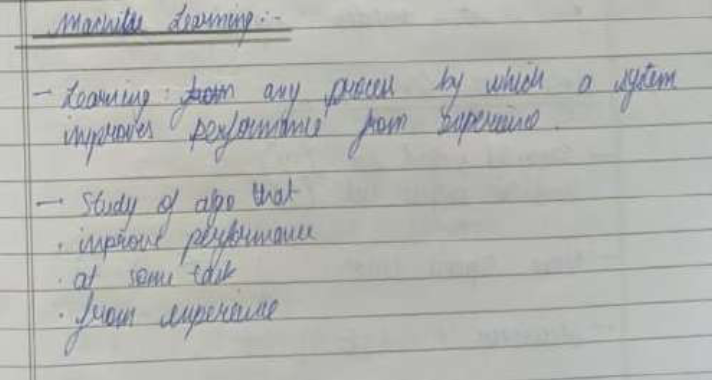 Machine Learning :-
- Learning : from any process by which a system
improves performance from experience.
- Study of algo that
. improve performance
. at some task
. from experience